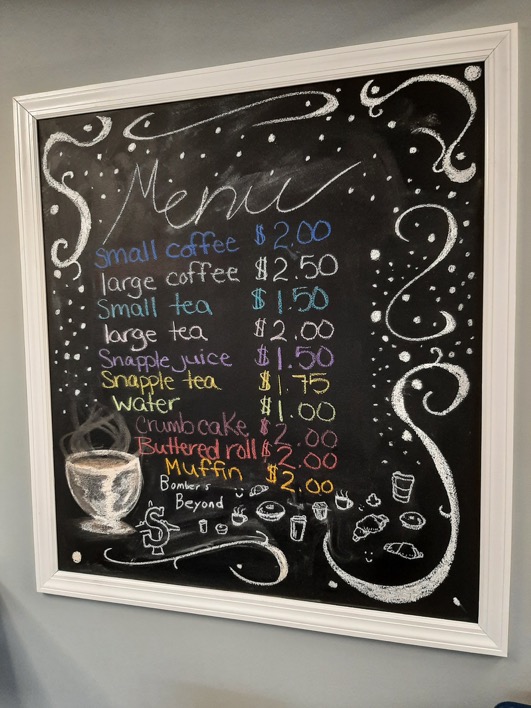 Menu
small coffee $2.00
large coffee $2.50
Small tea $1.50
large tea $2.00
Snapple juice $1.50
Snapple tea $1.75
water $1.00
Crumb cake $2.00
Buttered roll $2.00
Muffin $2.00
Bomber's
Beyond
S